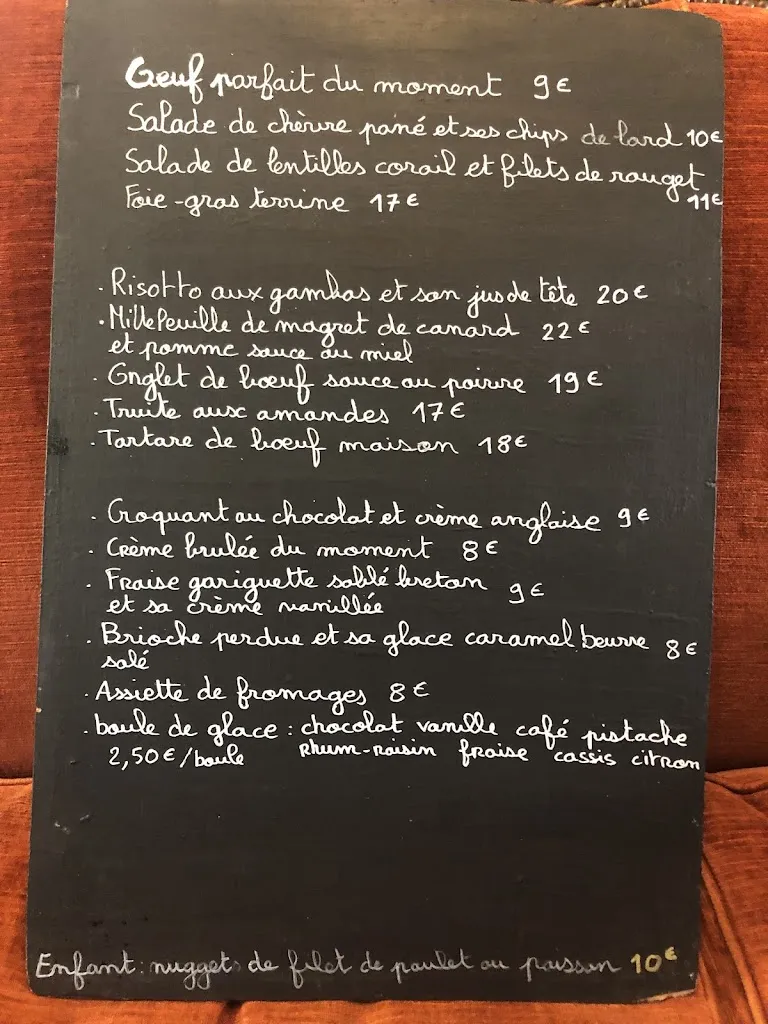 Oeuf parfait du moment 9€
Salade de chèvre pané et ses chips de lard 10€
Salade de lentilles corail et filets de rouget
11€
Foie-gras terrine 17€
. Risotto aux gambas et son jus de tête 20€
. Millefeuille de magret de canard 22€
et pomme sauce au miel
. Onglet de boeuf sauce au poivre 19€
. Truite aux amandes 17€
. Tartare de boeuf maison 18€
. Croquant au chocolat et crème anglaise 9€
. Crème brulée du moment 8€
. Fraise gariguette sablé breton 9€
et sa crème vanillée
. Brioche perdue et sa glace caramel beurre 8€
salé
. Assiette de fromages 8€
. boule de glace : chocolat vanille café pistache
2,50€/boule Rhum-raisin fraise cassis citron
Enfant : nuggets de filet de poulet ou poisson 10€